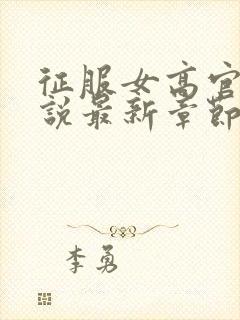 征服女高官
說最新章節
李勇